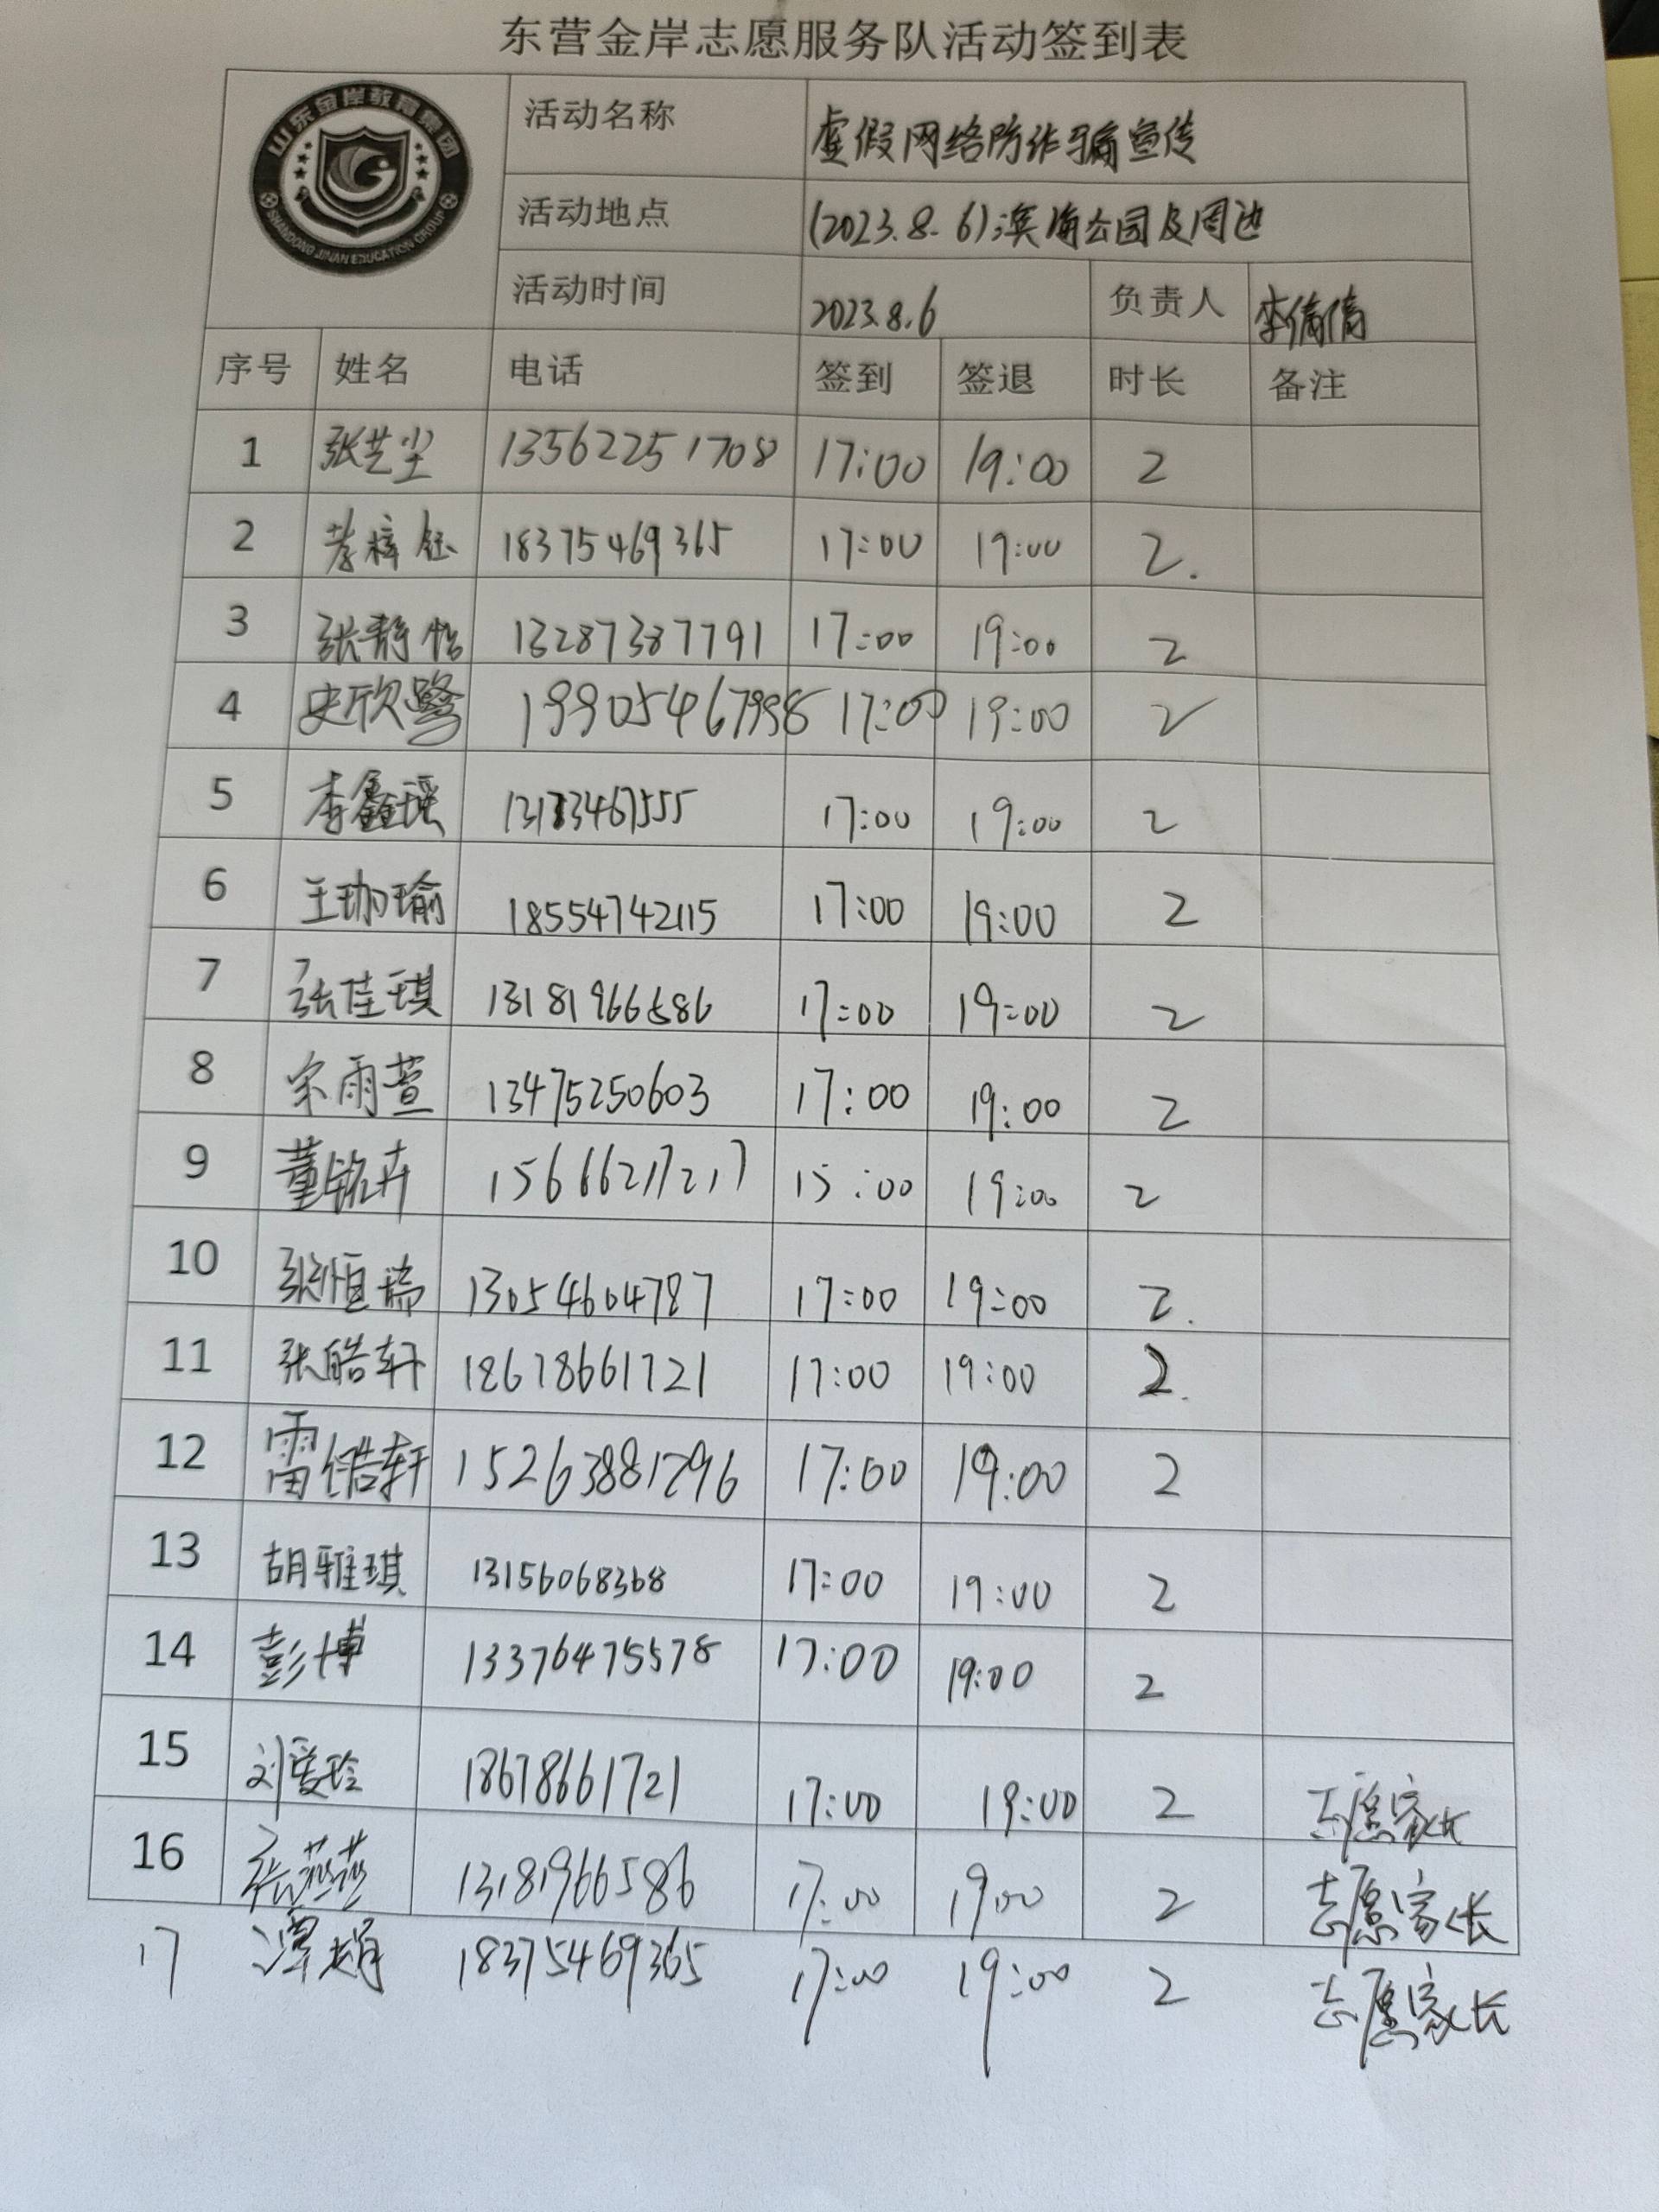 东营金岸志愿服务队活动签到表
山东金岸教育集团
SHANDONG JINAN EDUCATION GROUP
活动名称 虚假网络防诈骗宣传
活动地点 (2023.8.6)滨海公园及周边
活动时间 2023.8.6 负责人 李倩倩
序号 姓名 电话 签到 签退 时长 备注
1 张芝尘 13562251708 17:00 19:00 2
2 梓钰 18375469365 17:00 19:00 2.
3 张静怡 13287387791 17:00 19:00 2
4 史欣鹭 19905467998 17:00 19:00 2
5 李鑫瑶 13173467555 17:00 19:00 2
6 王珈瑜 18554742115 17:00 19:00 2
7 张佳琪 13181966586 17:00 19:00 2
8 宗雨萱 13475250603 17:00 19:00 2
9 董铭卉 15666217217 15:00 19:00 2
10 张恒瑞 13054604787 17:00 19:00 2.
11 张皓轩 18678661721 17:00 19:00 2.
12 雷皓轩 15263881796 17:00 19:00 2
13 胡雅琪 13156068368 17:00 19:00 2
14 彭博 13376475578 17:00 19:00 2
15 刘爱玲 18678661721 17:00 19:00 2 志愿家长
16 张燕燕 13181966586 17:00 19:00 2 志愿家长
17 谭娟 18375469365 17:00 19:00 2 志愿家长